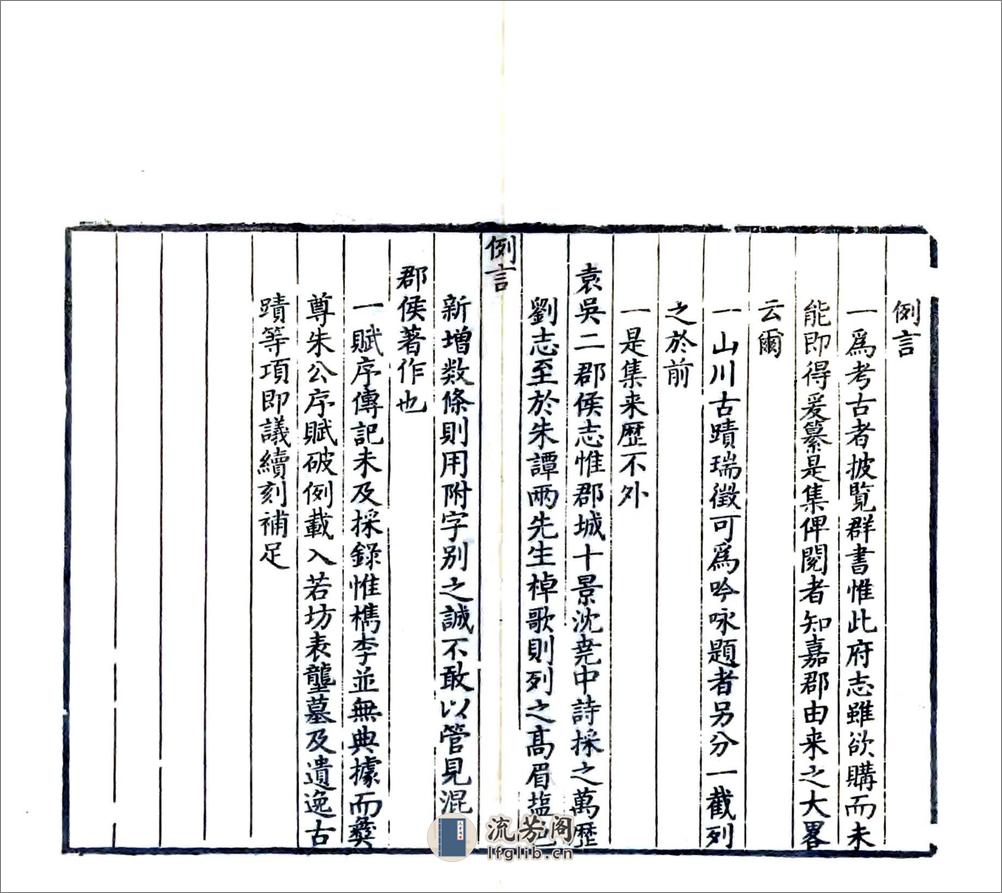 例言
一爲考古者披覧群書惟此府志雖欲購而未
能即得爰纂是集俾閱者知嘉郡由来之大畧
云爾
一山川古蹟瑞徵可爲吟咏題者另分一截列
之於前
一是集来歷不外
袁吳二郡侯志惟郡城十景沈尭中詩採之萬歷
劉志至於朱譚兩先生棹歌則列之髙眉塩
例言
新增数條則用附字别之誠不敢以管見混
郡侯著作也
一賦序傳記未及採錄惟檇李並無典據而彛
尊朱公序賦破例載入若坊表壟墓及遺逸古
蹟等項即議續刻補足
流芳阁
lfglib.cn